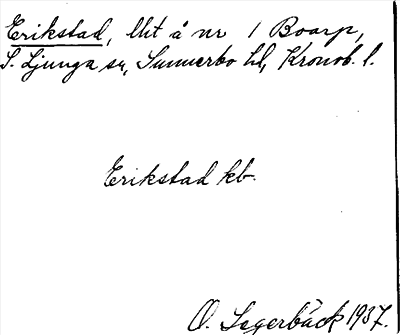 Erikstad, lht å nr 1 Boarp,
S. Ljunga sn, Sunnerbo hd, Kronob. l.
Erikstad kb.
O. Segerbäck 1937.